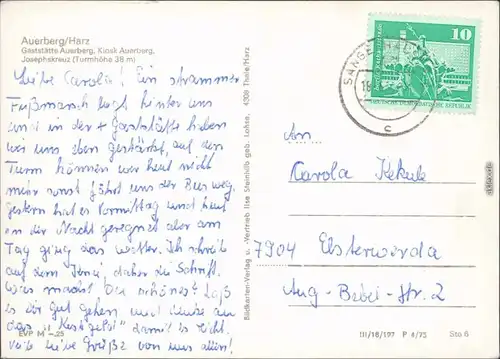 Auerberg/Harz
Gaststätte Auerberg, Kiosk Auerberg,
Josephskreuz (Turmhöhe 38 m)
Liebe Carola! Ein strammer
Fußmarsch liegt hinter uns
und in der + Gaststätte haben
wir uns eben gestärkt, auf den
Turm können wir heut nicht
mehr sonst fährt uns der Bus weg.
Gestern hat es Vormittag und heut
in der Nacht geregnet aber am
Tag ging das Wetter. Ich schreib
auf dem Terrain, daher die Schrift.
Was machst Du schönes? Laß
es dir gut gehen und denke an
das "Kostgeld" damit es reicht.
Viele liebe Grüße von uns allen!
EVP M -.25
Bildkarten-Verlag u. -Vertrieb Ilse Steinhilb geb. Lohse, 4308 Thale/Harz
10
DEUTSCHE DEMOKRATISCHE REPUBLIK
c
An
Carola Kekule
7904 Elsterwerda
Aug-Bebel-Str. 2
III/18/197 P 4/75 Sto 6